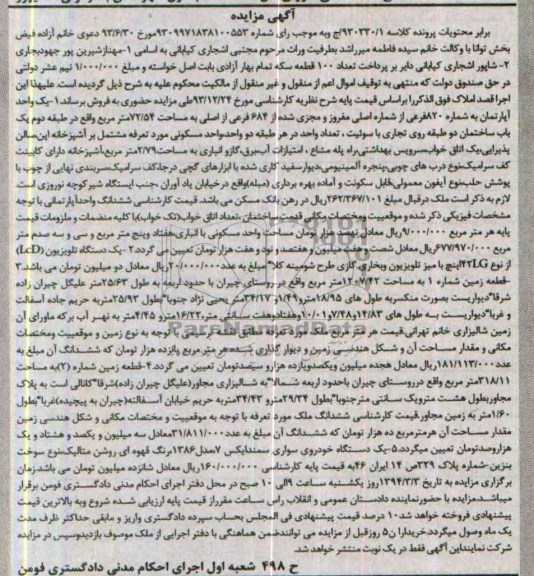 آگهی مزایده
برابر محتویات پرونده کلاسه ۹۳۰۲۳۰/۱ج وبه موجب رای شماره ۹۳۰۹۹۷۱۸۳۸۱۰۰۵۵۳مورخ ۹۳/۶/۳۰ دعوی خانم آزاده فیض
بخش توانا با وکالت خانم سیده فاطمه میرراشد بطرفیت وراث مرحوم مجتبی اشجاری کپابانی به اسامی ۱-مهنازشیرین پور جهودبجاری
۲- شاپور اشجاری کیابانی دایر بر پرداخت تعداد ۱۰۰ قطعه سکه تمام بهار آزادی بابت اصل خواسته و مبلغ ۱/۰۰۰/۰۰۰ نیم عشر دولتی
در حق صندوق دولت که منتهی به توقیف اموال اعم از منقول و غیر منقول از مالکیت محکوم علیه به شرح ذیل گردیده است. علیهذا این
اجرا قصد املاک فوق الذکررا براساس قیمت پایه شرح نظریه کارشناسی مورخ ۹۳/۱۲/۲۴طی مزایده حضوری به فروش برساند. ۱-یک واحد
آپارتمان به شماره ۸۲۰فرعی از شماره اصلی مفروز و مجزی شده از ۶۸۴ فرعی از اصلی به مساحت ۷۲/۵۴متر مربع واقع در طبقه دوم یک
باب ساختمان دو طبقه روی تجاری با سوئیت ، تعداد واحد در هر طبقه دو واحد،واحد مسکونی مورد تعرفه مشتمل بر آشپزخانه اپن،سالن
پذیرایی،یک اتاق خواب،سرویس بهداشتی،راه پله مشاع ، امتیازات آب،برق،گازو انباری به مساحت۲/۷۹متر مربع،آشپزخانه دارای کابینت
کف سرامیک،نوع درب های چوبی،پنجره آلمینیومی،دیوارسفید کاری شده با ابزارهای گچی درجا،کف سرامیک،سربندی نهایی از چوب با
پوشش حلب،نوع آیفون معمولی،قابل سکونت و آماده بهره برداری (مبله)واقع درخیابان یاد آوران ،جنب ایستگاه شیرکوچه نوروزی است.
لازم به ذکر است ملک درقبال مبلغ ۲۶۲/۳۶۷/۱۰۱ریال در رهن بانک مسکن می باشد. قیمت کارشناسی ششدانگ واحدآپارتمانی با توجه
مشخصات فیزیکی ذکر شده و موقعیت ومختصات مکانی قدمت ساختمان ،تعداد اتاق خواب(تک خواب)با کلیه منضمات و ملزومات قیمت
پایه هر متر مربع ۹/۰۰۰/۰۰۰ریال معادل نهصد هزار تومان مساحت واحد مسکونی با انباری هفتاد وپنج متر مربع و سی و سه صدم متر
مربع ۶۷۷/۹۷۰/۰۰۰ریال معادل شصت و هفت میلیون و هفتصد و نود و هفت هزار تومان تعیین می گردد.۲-یک دستگاه تلویزیون (LcD)
از نوع ۴۲LGاینچ با میز تلویزیون وبخاری گازی طرح شومینه کلا" مبلغ به عدد۲۰/۰۰۰/۰۰۰ریال معادل دو میلیون تومان می باشد.۳
-قطعه زمین شماره ۱ به مساحت ۱۲۰۷/۴۲متر مربع واقع در روستای چیران با حدود اربعه به طول ۲۵/۶۳متر علیگل چیران زاده
شرقا"دیواریست بصورت منکسربه طول های ۱۸/۹۵مترو۱/۴۹و۳۴/۱۷متر یحیی نژاد جنوبا"بطول ۲۵/۹۳متربه حریم جاده آسفالت
و غربا"دیواریست بـه طول های ۱۴/۸۳و۷/۴۸و۱۰/۰۱وهفتادوهفت سـانتی متر،۱۶/۲۲مترو ۴/۴۵متر به نهـر آب برکه ماورای آن
زمین شالیزاری خانم تهرانی.قیمت هر متر مربع ملک مورد تعرفه مطابق نقشه ترسیمی با توجه به نوع زمین و موقعییت ومختصات
مکانی و مقدار مساحت آن و شـکل هندسـی زمین و دیوار گذاری شده،هر متر مربع پانزده هزار تومان که ششدانگ آن مبلغ به
عدد۱۸۱/۱۱۳/۰۰۰ریال معادل هجده میلیون ویکصدویازده هزارو سیصدتومان تعیین می گردد.۴-قطعه زمین شماره (۲)به مساحت
۳۱۸/۱۱متر مربع واقع درروستای چیران باحدود اربعه شمالا"به شـالیزاری مجاور(علیگل چیران زاده)شرقا"کانالی است به پلاک
مجاوربطول هشت مترویک سـانتی متر،جنوبا"بطول ۲۹/۳۴مترو۳۴/۴۳متربه حریم خیابان آسـفالته(چیران به پیچیده)غربا"بطول
۱/۶۰متر به زمین مجاور.قیمت کارشناسی ششدانگ ملک مورد تعرفه با توجه به موقعییت و مختصات مکانی و شکل هندسی زمین
مقدار مساحت آن هرمترمربع ده هزار تومان که ششدانگ آن مبلغ به عدد۳۱/۸۱۱/۰۰۰معادل سه میلیون و یکصد و هشتاد و یک
هزاروصدتومان تعیین میگردد.۵-یک دستگاه خودروی سواری سمندایکس ۷مدل۱۳۸۶رنگ قهوه ای روشن متالیک،نوع سوخت
بنزین-شماره پلاک ۳۲۹ص ۱۴ ایران ۴۶به قیمت پایه کارشناسی ۱۶۰/۰۰۰/۰۰۰ریال معادل شانزده میلیون تومان می باشد.زمان
برگزاری مزایده به تاریخ ۱۳۹۴/۳/۳روز یکشنبه ساعت ۹الی ۱۰ صبح در محل دفتر اجرای احکام مدنی دادگستری فومن برقرار
میباشد.مزایده با حضورنماینده دادستان عمومی و انقلاب راس ساعت مقرراز قیمت پایه ارزیابی شده شروع وبه بالاترین قیمت
پیشنهادی فروخته خواهد شد.۱۰ درصد قیمت پیشنهادی فی المجلس بحساب سپرده دادگستری واریز و مابقی حداکثر ظرف مدت
یک ماه وصول میگردد.خریدارا ن۵ روزقبل از مزایده می توانندضمن هماهنگی با دفتر اجرایی از ملک موصوف بازدیدوسپس در مزایده
شرکت نمایند.این آگهی فقط در یک نوبت منتشر خواهد شد.
ح ۴۹۸ شعبه اول اجرای احکام مدنی دادگستری فومن